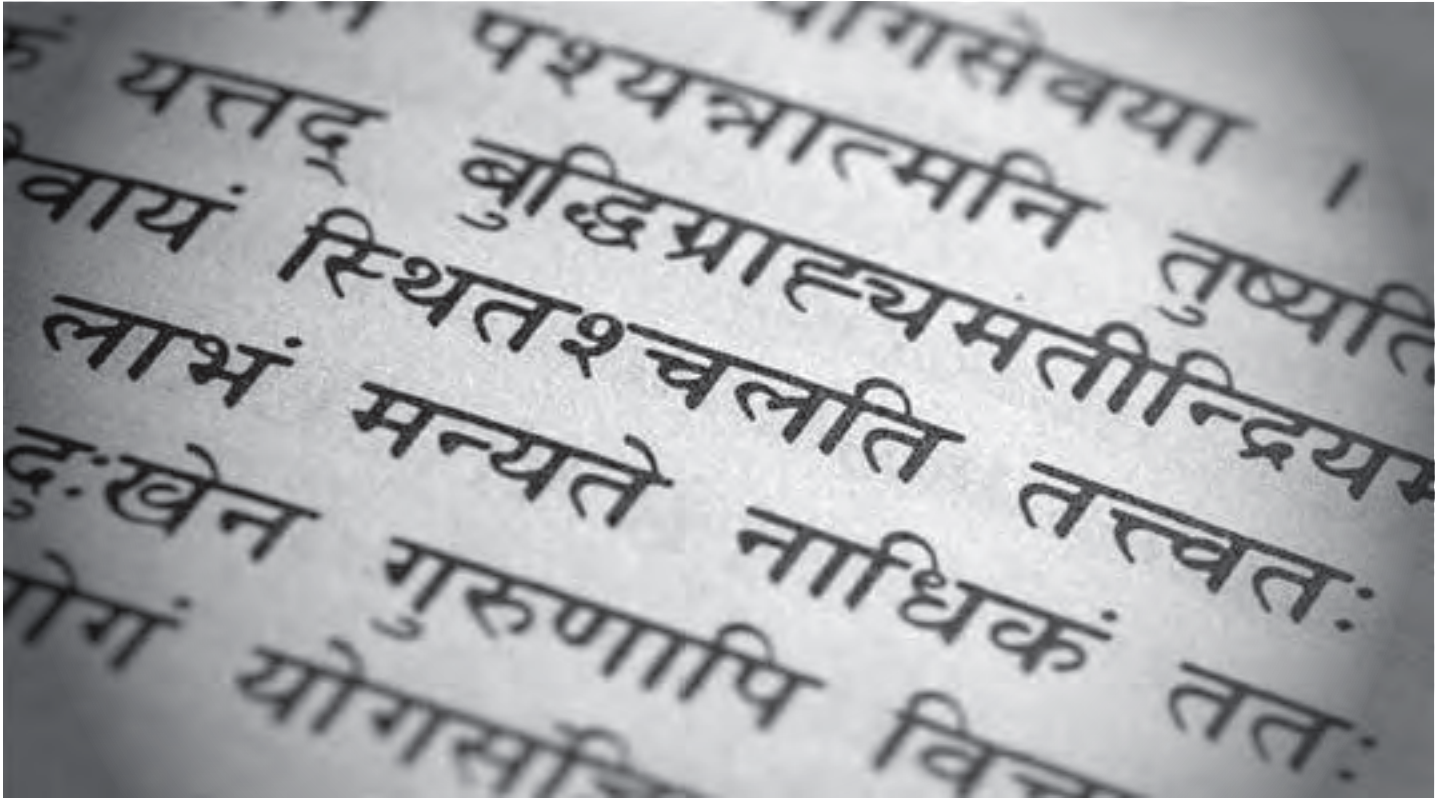 योगसेवया ।
पश्यन्नात्मनि तुष्यति
यत्तद् बुद्धिग्राह्यमतीन्द्रियम
वायं स्थितश्चलति तत्त्वतः
लाभं मन्यते नाधिकं ततः
दुःखेन गुरुणापि विच
योगं योगसंज्ञि